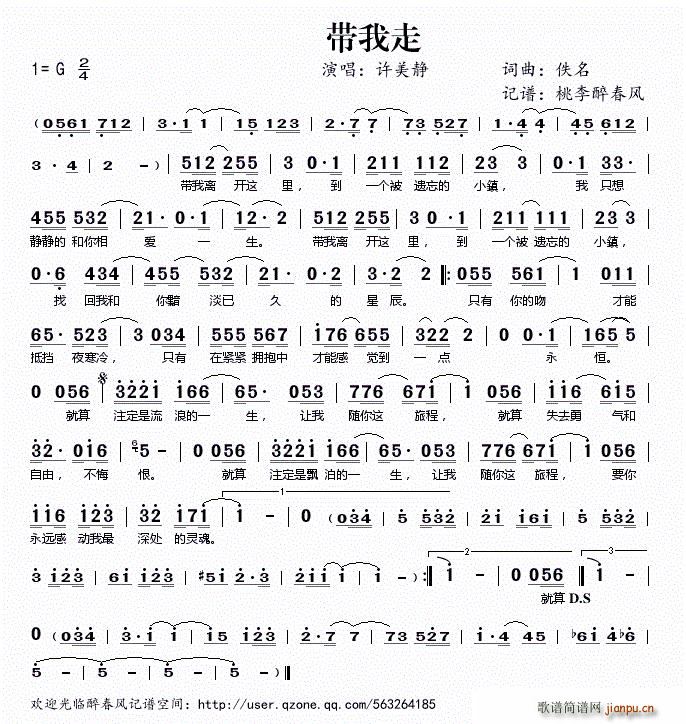 带我走
1=G 2/4 演唱：许美静 词曲：佚名
记谱：桃李醉春风
(0561 712 | 3·1 1 | 15 123 | 2·7 7 | 73 527 | 1·4 4 | 45 612
3·4 | 2 - ) | 512 255 | 3 0·1 | 211 113 | 23 3 | 0·1 33·
带我离 开这 里，到 一个被 遗忘的 小鎮， 我 只想
455 532 | 21· 0·1 | 12·2 | 512 255 | 3 0·1 | 211 113 | 23 3 |
静静的 和你相 爱 一 生。 带我离 开这 里，到 一个被 遗忘的 小鎮，
0·6 434 | 455 532 | 21· 0·2 | 3·2 2 |: 055 561 | 1 011 |
找 回我和 你黯 淡已 久 的 星 辰。 只有 你的吻 才能
65· 523 | 3 034 | 555 567 | 176 655 | 322 2 | 0 0 | 165 5 |
抵挡 夜寒冷， 只有 在紧紧 拥抱中 才能感 觉到 一 点 永 恒。
0 056 | 3221 166 | 65· 053 | 776 671 | 1 056 | 116 611 |
就算 注定是流 浪的一 生，让我 随你这 旅程， 就算 失去勇 气和
32· 016 | 5 - | 0 056 | 3221 166 | 65·053 | 776 671 | 1 056 |
自由，不悔 恨。 就算 注定是飘 泊的一 生，让我 随你这 旅程， 要你
116 123 | 32 171 | 1 - | 0 (034 | 5 532 | 21 161 | 5 532 |
永远感 动我最 深处 的灵魂。
1
3 123 | 61 123 | #51 2·3 | 2111 1 | 1 - ) :| 1 - | 0 056 :| 1 - |
2
3
就算 D.S
0 (034 | 3·1 1 | 15 123 | 2·7 7 | 73 527 | 1·4 4 | b61 4b6 |
5 - | 5 - | 5 - | 5 - )||
欢迎光临醉春风记谱空间：http://user.qzone.qq.com/563264185
歌谱简谱网
jianpu.cn